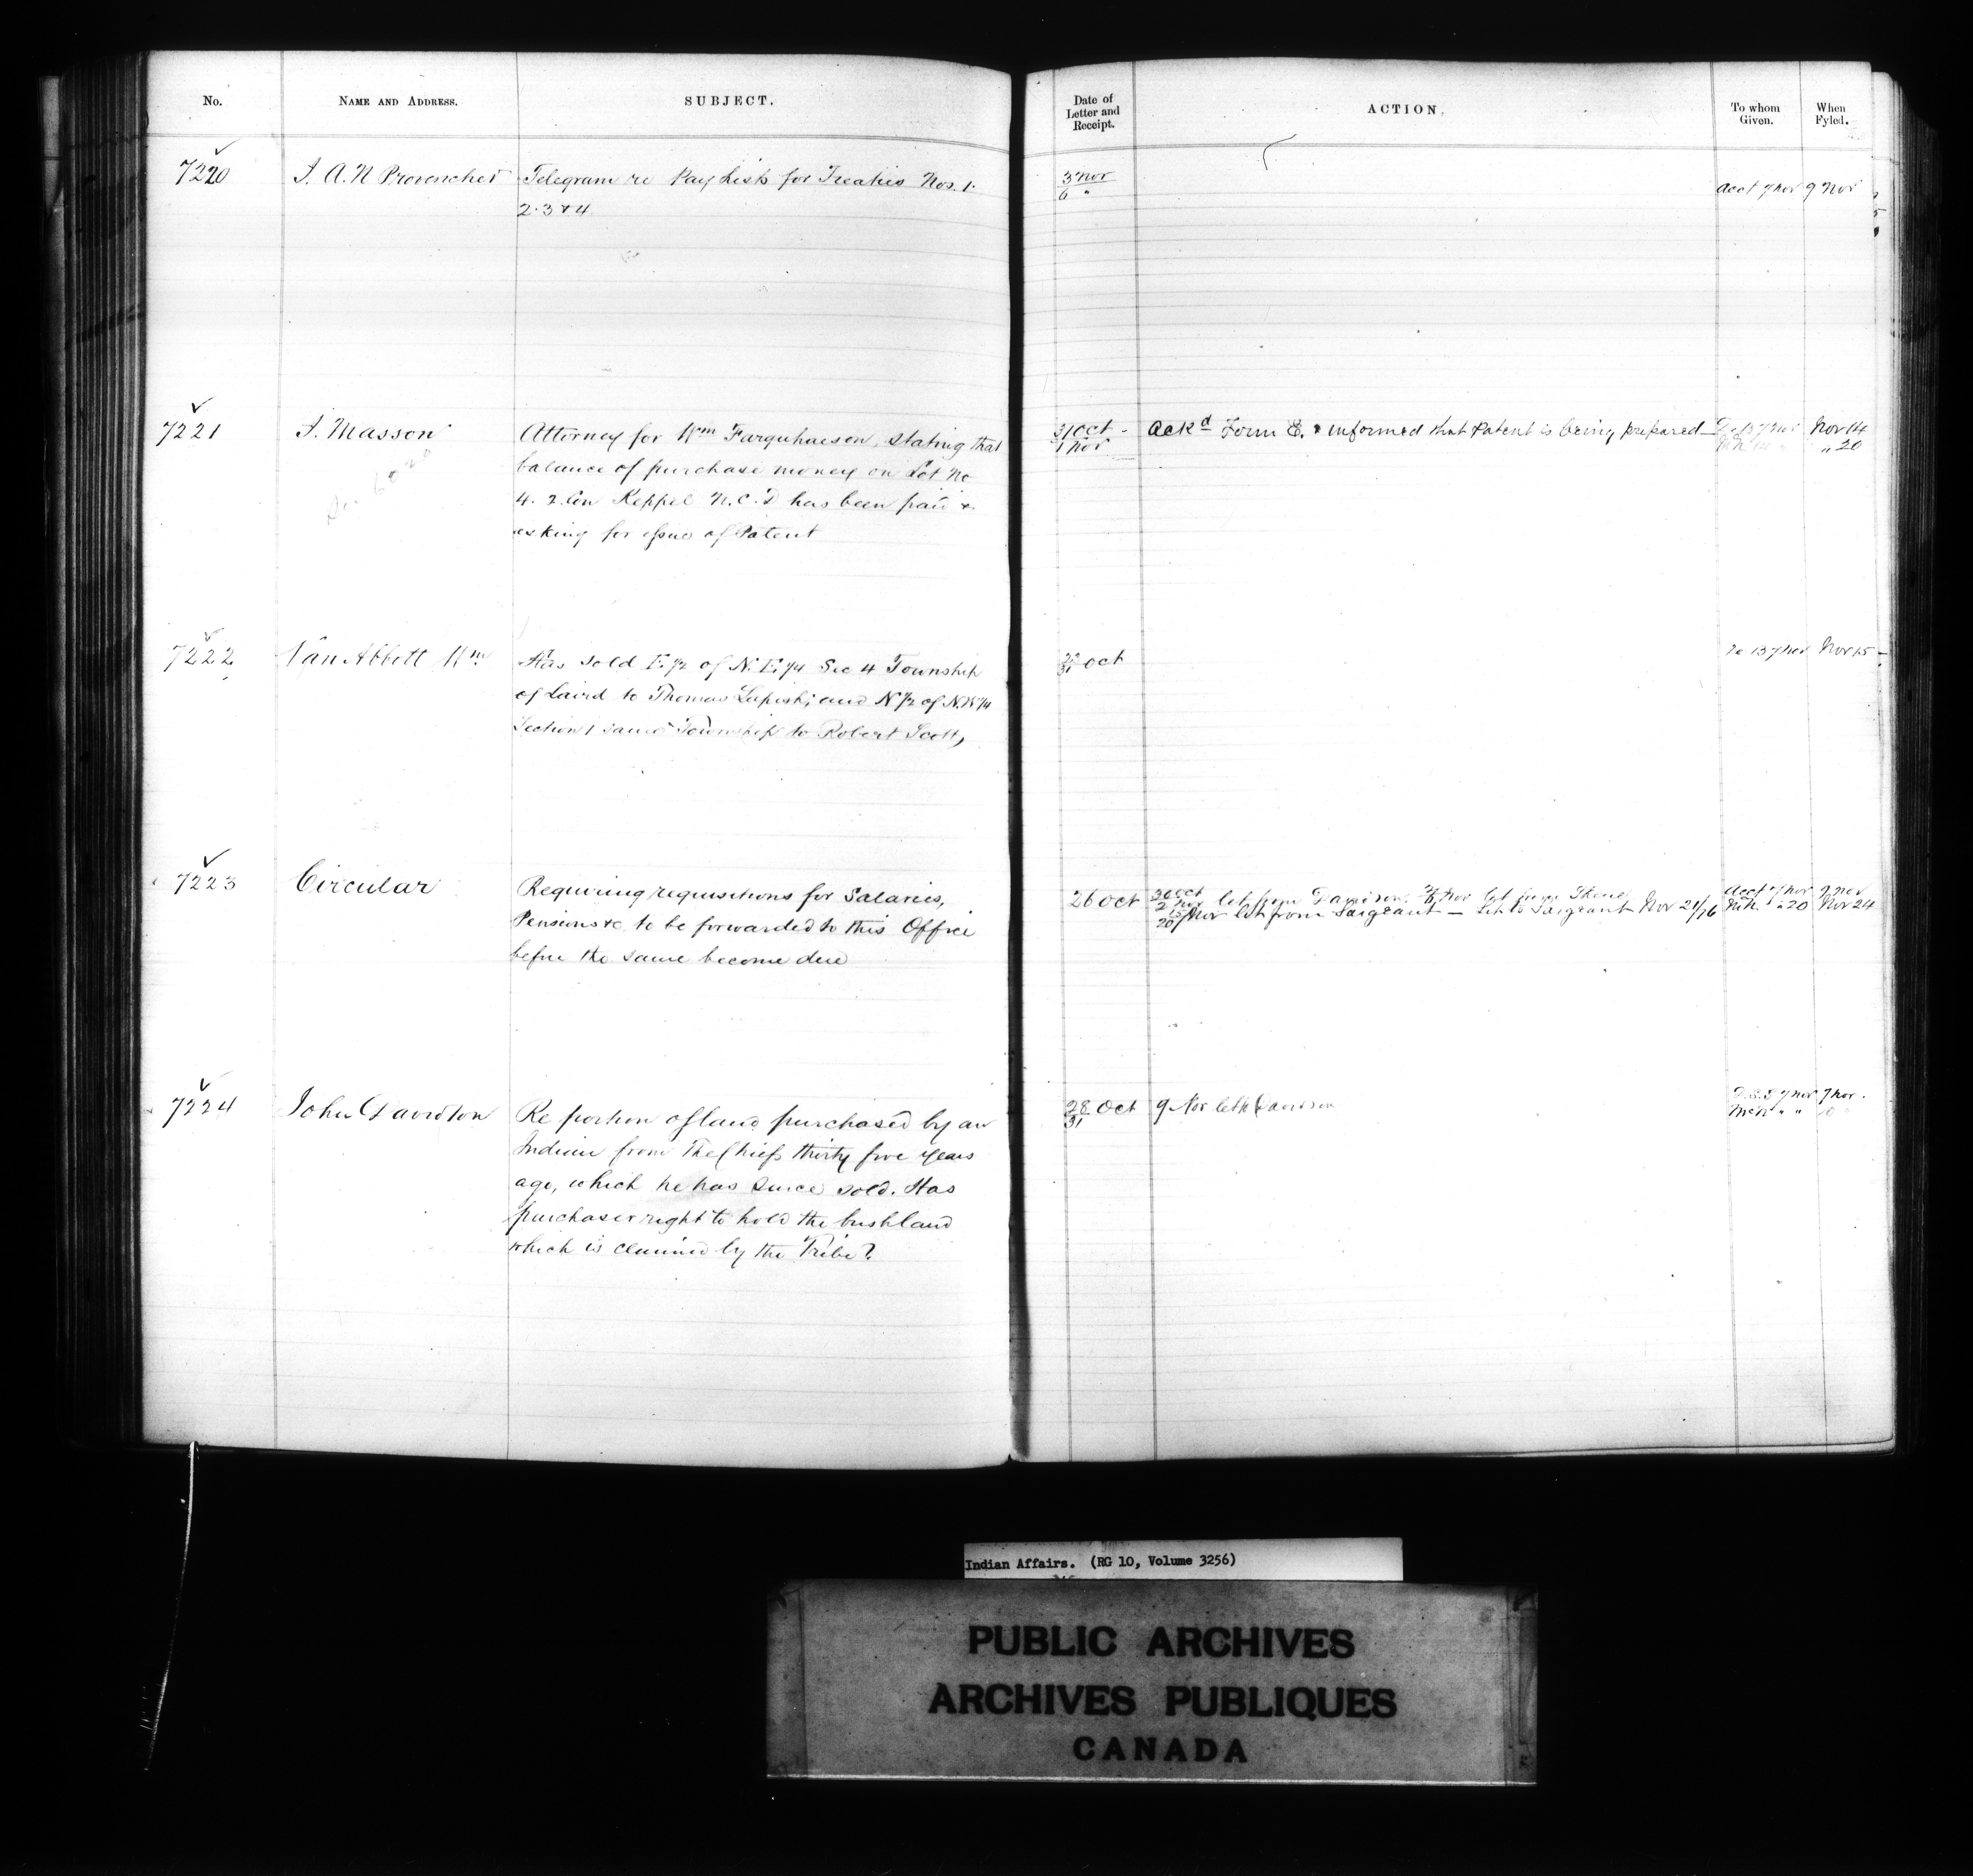 No. NAME AND ADDRESS. SUBJECT. Date of Letter and Receipt. ACTION. To whom Given. When Fyled.
7220 J. A. N Provencher Telegram re Pay Lists for Treaties Nos. 1. 3 Nov Acct 7 Nov 9 Nov
2. 3 & 4 6 "
7221 J. Masson Attorney for Wm Farquharson, stating that 31 Oct Ackd Form E. & informed that Patent is being prepared Nov 14
balance of purchase money on Lot No 1 Nov " 20
4. 2 Con Keppel N. C. D has been paid &
asking for issue of Patent
7222 Van Abbott Wm Has sold E. 1/2 of N. E. 1/4 Sec 4 Township Oct 7 Nov Nov 15
of Laird to Thomas and N 1/2 of N.W 1/4 31
Section 1 same Township to Robert Scott,
7223 Circular Requiring requisitions for Salaries, 26 Oct 30 Oct 2 Nov let from Davidson. Nov let from Acct 7 Nov 9 Nov
Pensions &c to be forwarded to this Office 20 Nov let from Sargeant — Let to Sargeant Nov 21/76 McN. " 20 Nov 24
before the same become due
7224 John Davidson Re portion of land purchased by an 28 Oct 9 Nov let to Davidson 7 Nov 7 Nov.
Indian from The Chiefs thirty five years 31 McN " "
ago, which he has since sold. Has
purchaser right to hold the bushland
which is claimed by the Tribe?
Indian Affairs. (RG 10, Volume 3256)
PUBLIC ARCHIVES
ARCHIVES PUBLIQUES
CANADA